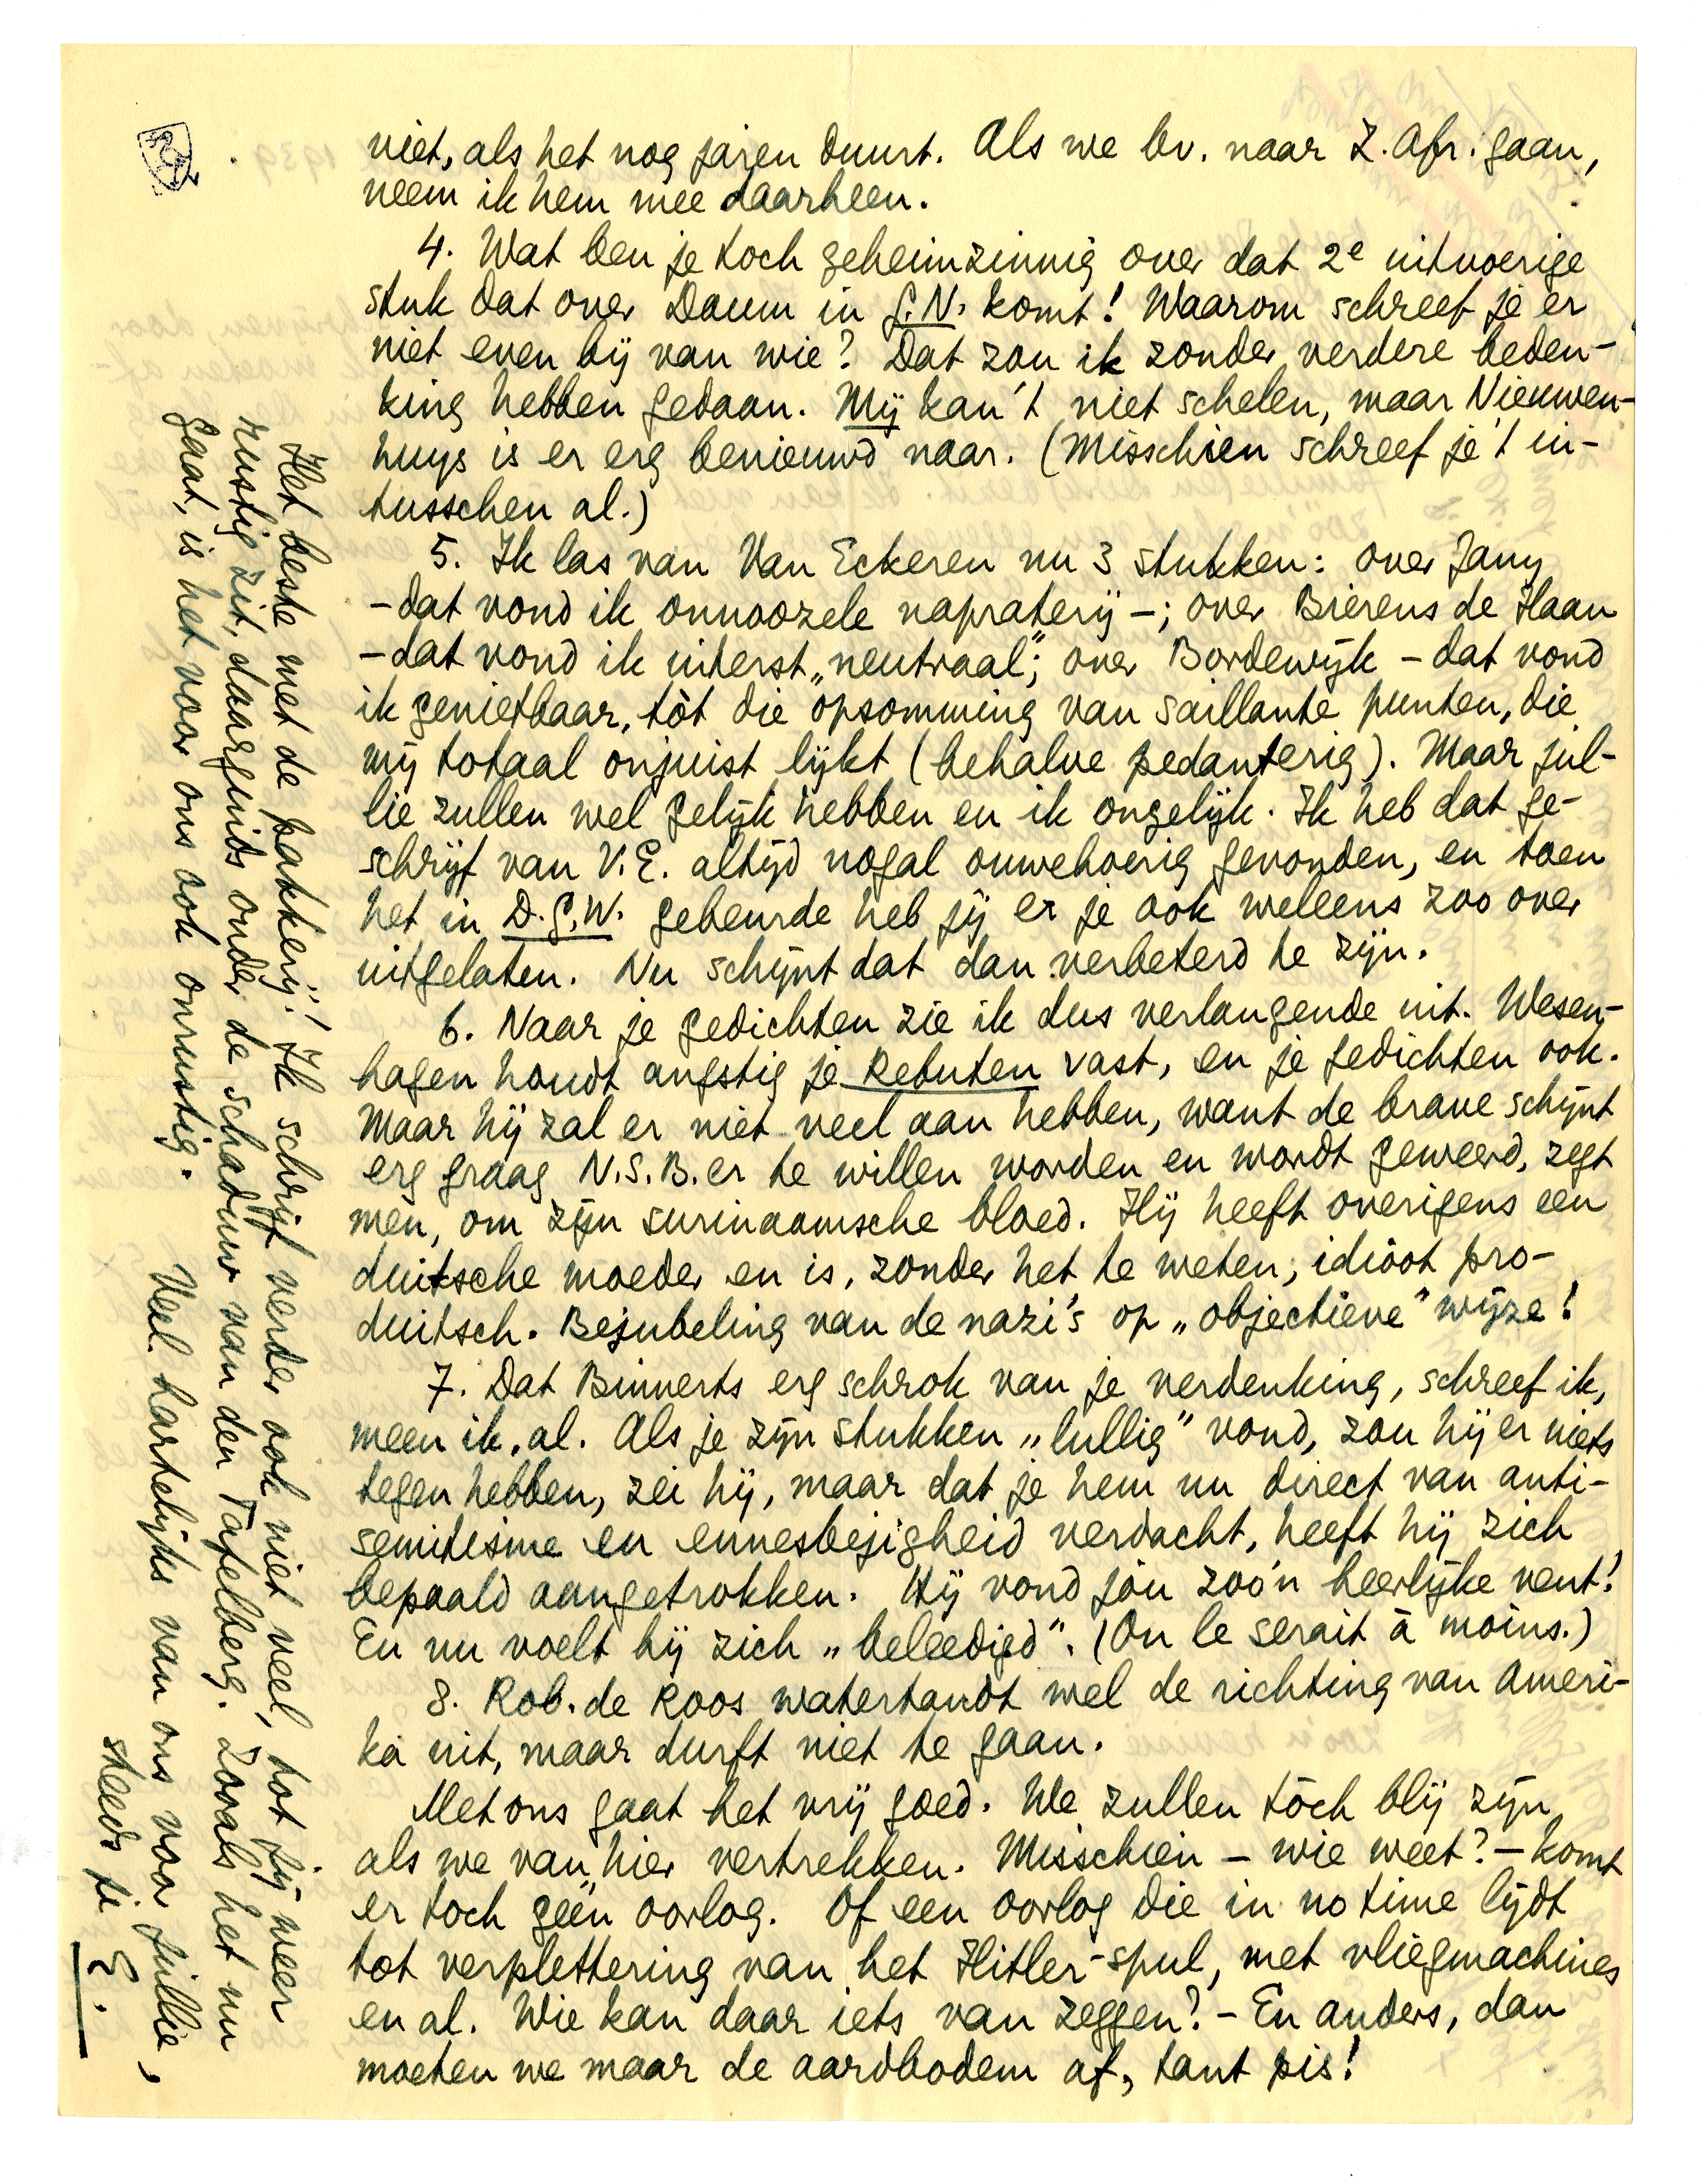 niet, als het nog jaren duurt. Als we bv. naar Z. Afr. gaan,
neem ik hem mee daarheen.
4. Wat ben je toch geheimzinnig over dat 2e uitvoerige
stuk dat over Daum in G.N. komt! Waarom schreef je er
niet even bij van wie? Dat zou ik zonder verdere beden-
king hebben gedaan. Mij kan 't niet schelen, maar Nieuwen-
huys is er erg benieuwd naar. (Misschien schreef je 't in-
tusschen al.)
5. Ik las van Van Eckeren nu 3 stukken: over Jany
- dat vond ik onnoozele napraterij -; over Bierens de Haan
- dat vond ik uiterst „neutraal"; over Bordewijk - dat vond
ik genietbaar, tòt die opsomming van saillante punten, die
mij totaal onjuist lijkt (behalve pedanterig). Maar jul-
lie zullen wel gelijk hebben en ik ongelijk. Ik heb dat ge-
schrijf van V.E. altijd nogal ouwehoerig gevonden, en toen
het in D.G.W. gebeurde heb jij er je ook weleens zoo over
uitgelaten. Nu schijnt dat dan verbeterd te zijn.
6. Naar je gedichten zie ik dus verlangende uit. Wesen-
hagen houdt angstig je Rebuten vast, en je gedichten ook.
Maar hij zal er niet veel aan hebben, want de brave schijnt
erg graag N.S.B.er te willen worden en wordt geweerd, zegt
men, om zijn surinaamsche bloed. Hij heeft overigens een
duitsche moeder en is, zonder het te weten, idioot pro-
duitsch. Bejubeling van de nazi's op „objectieve" wijze!
7. Dat Binnerts erg schrok van je verdenking, schreef ik,
meen ik, al. Als je zijn stukken „lullig" vond, zou hij er niets
tegen hebben, zei hij, maar dat je hem nu direct van anti-
semitisme en ennesbejigheid verdacht, heeft hij zich
bepaald aangetrokken. Hij vond jóu zoo'n heerlijke vent!
En nu voelt hij zich „beleedigd". (On le serait à moins.)
8. Rob. de Roos watertandt wel de richting van Ameri-
ka uit, maar durft niet te gaan.
Met ons gaat het vrij goed. We zullen tóch blij zijn
als we van hier vertrekken. Misschien - wie weet? - komt
er toch géén oorlog. Of een oorlog die in no time lijdt
tot verplettering van het Hitler-spul, met vliegmachines
en al. Wie kan daar iets van zeggen? - En anders, dan
moeten we maar de aardbodem af, tant pis!
Het beste met de pakkerij! Ik schrijf verder ook niet veel, tot jij weer
rustig zit, daarginds onder de schaduw van den Tafelberg. Zooals het nu
gaat, is het voor ons ook onrustig. Veel hartelijks van ons voor jullie,
steeds je E.